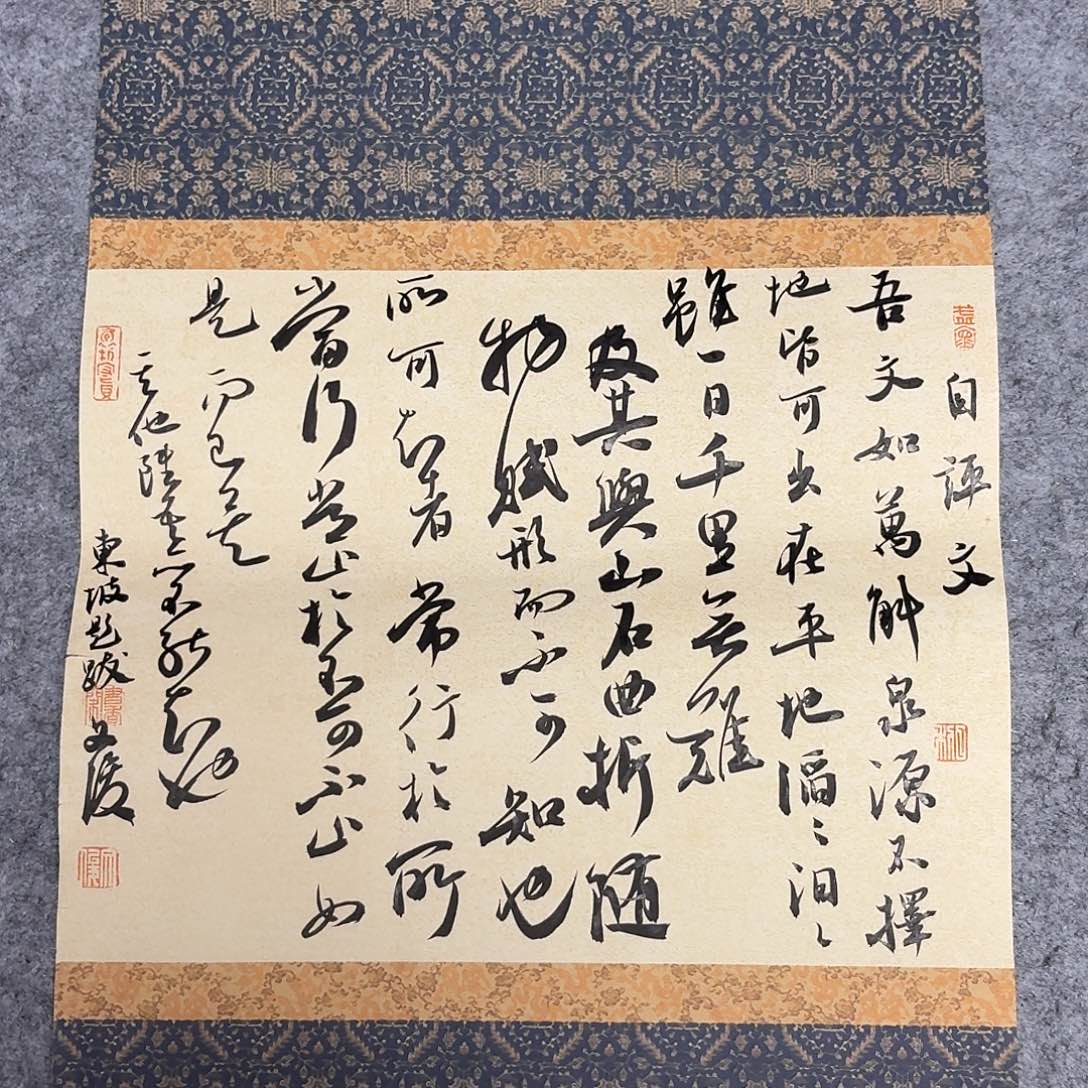 自評文
吾文如萬斛泉源不擇
地皆可出在平地滔〻汩〻
雖一日千里無難
及其與山石曲折随
物賦形而不可知也
所可知者常行於所
當行常止於不可不止如
是而已矣
其他雖吾亦不能知也
東坡題跋